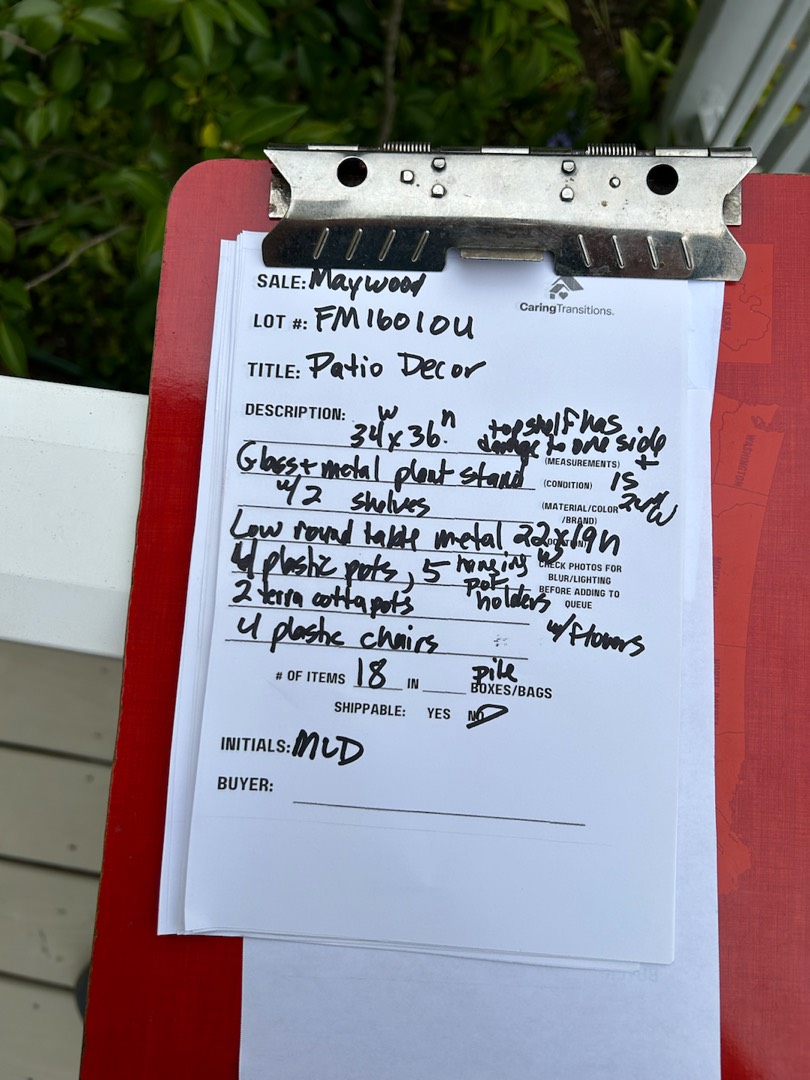 SALE: Maywood
CaringTransitions.
LOT #: FM16010U
TITLE: Patio Decor
DESCRIPTION: 34"w x 36"h top shelf has
damage to one side +
Glass + metal plant stand (MEASUREMENTS)
(CONDITION) is
w/2 shelves
(MATERIAL/COLOR
/BRAND)
Low round table metal 22x19h
4 plastic pots, 5 hanging w/ CHECK PHOTOS FOR
pot BLUR/LIGHTING
2 terra cotta pots holders BEFORE ADDING TO
QUEUE
w/flowers
4 plastic chairs
# OF ITEMS 18 IN pile BOXES/BAGS
SHIPPABLE: YES NO
INITIALS: MLD
BUYER:
WASHINGTON